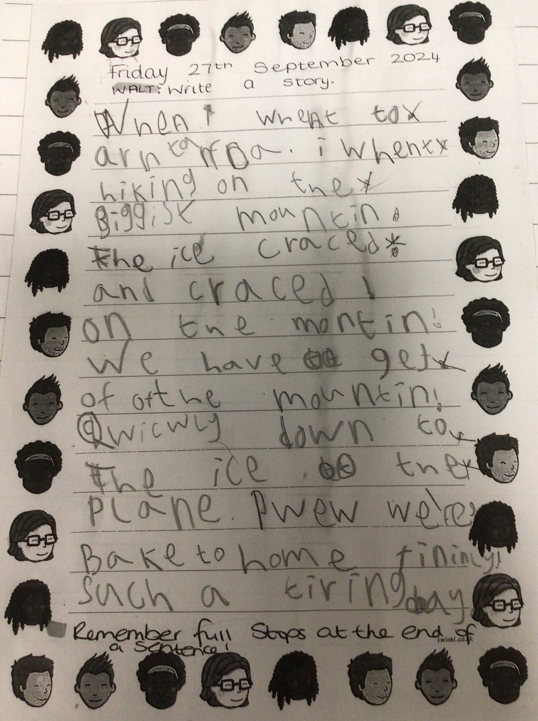 Friday 27th September 2024
WALT: Write a story.
When i wheat to
arntarfDa. i when
hiking on the
Biggist mountin.
the ice craced
and craced!
on the montin!
We have get
of of the mountin!
Qwicwly down to
the ice the
Plane. Pwew we're
Bake to home finincy!
such a tiring day.
Remember full stops at the end of
a sentence!